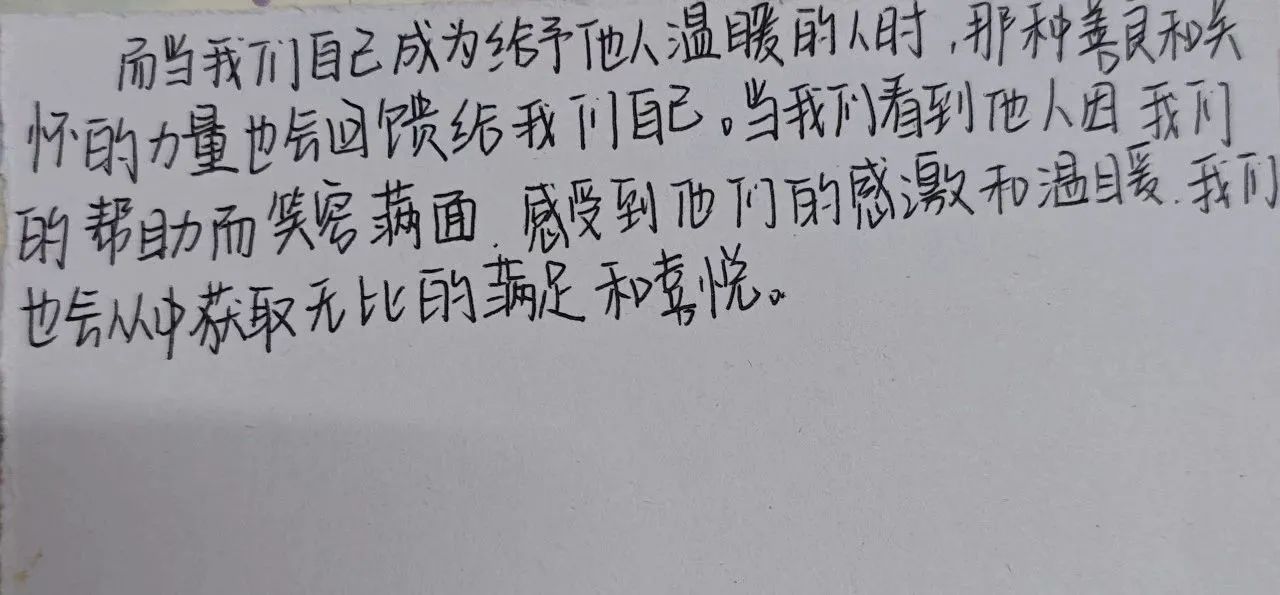 而当我们自己成为给予他人温暖的人时,那种善良和关
怀的力量也会回馈给我们自己。当我们看到他人因我们
的帮助而笑容满面.感受到他们的感激和温暖.我们
也会从中获取无比的满足和喜悦。